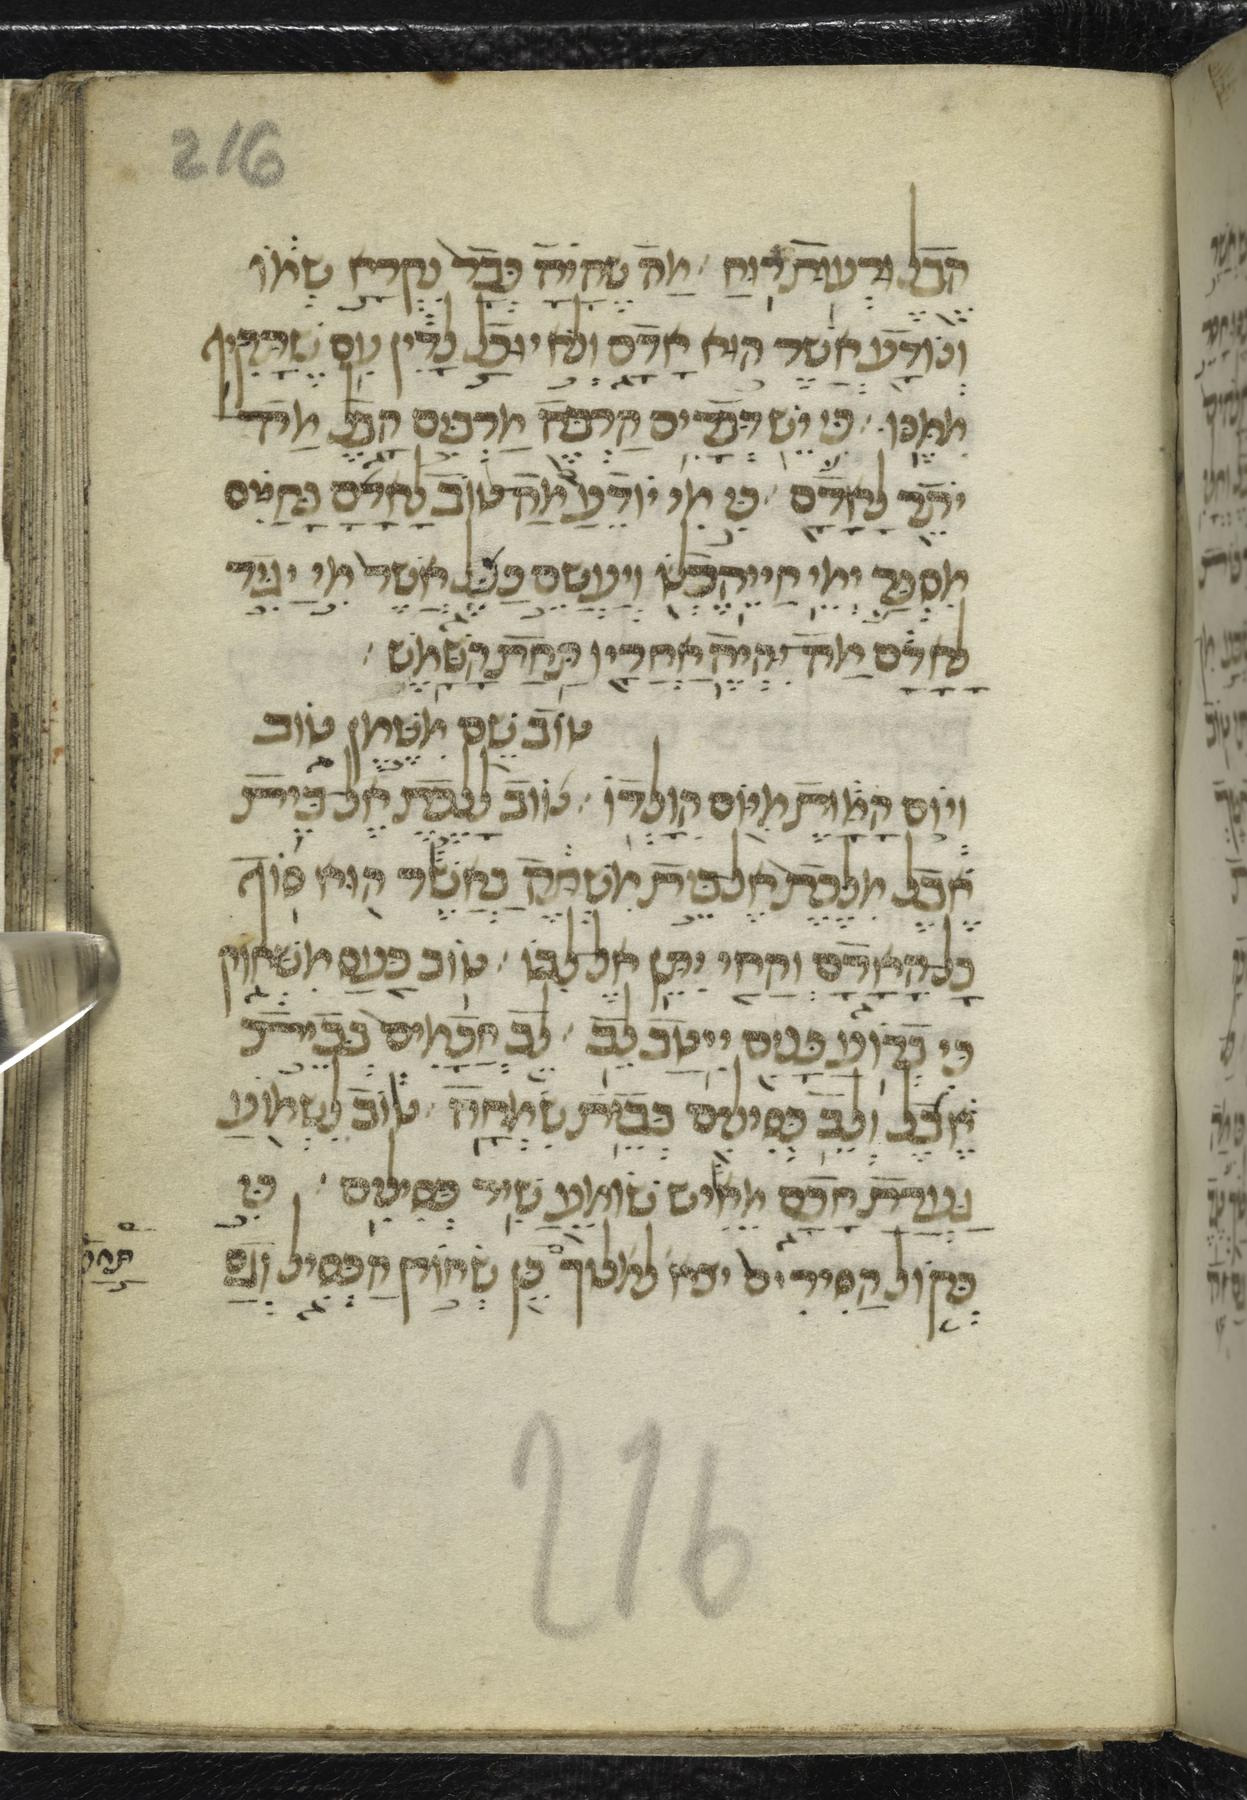 216
הבל ורעות רוח׃ מה שהיה כבר נקרא שמו
ונודע אשר הוא אדם ולא יוכל לדין עם שהתקיף
ממנו׃ כי יש דברים הרבה מרבים הבל מה
יתר לאדם׃ כי מי יודע מה טוב לאדם בחיים
מספר ימי חיי הבלו ויעשם כצל אשר מי יגיד
לאדם מה יהיה אחריו תחת השמש׃
טוב שם משמן טוב
ויום המות מיום הולדו׃ טוב ללכת אל בית
אבל מלכת אל בית משתה באשר הוא סוף
כל האדם והחי יתן אל לבו׃ טוב כעס משחוק
כי ברוע פנים ייטב לב׃ לב חכמים בבית
אבל ולב כסילים בבית שמחה׃ טוב לשמוע
גערת חכם מאיש שומע שיר כסילים׃ כי
כקול הסירים תחת הסיר כן שחוק הכסיל וגם
תחת
216